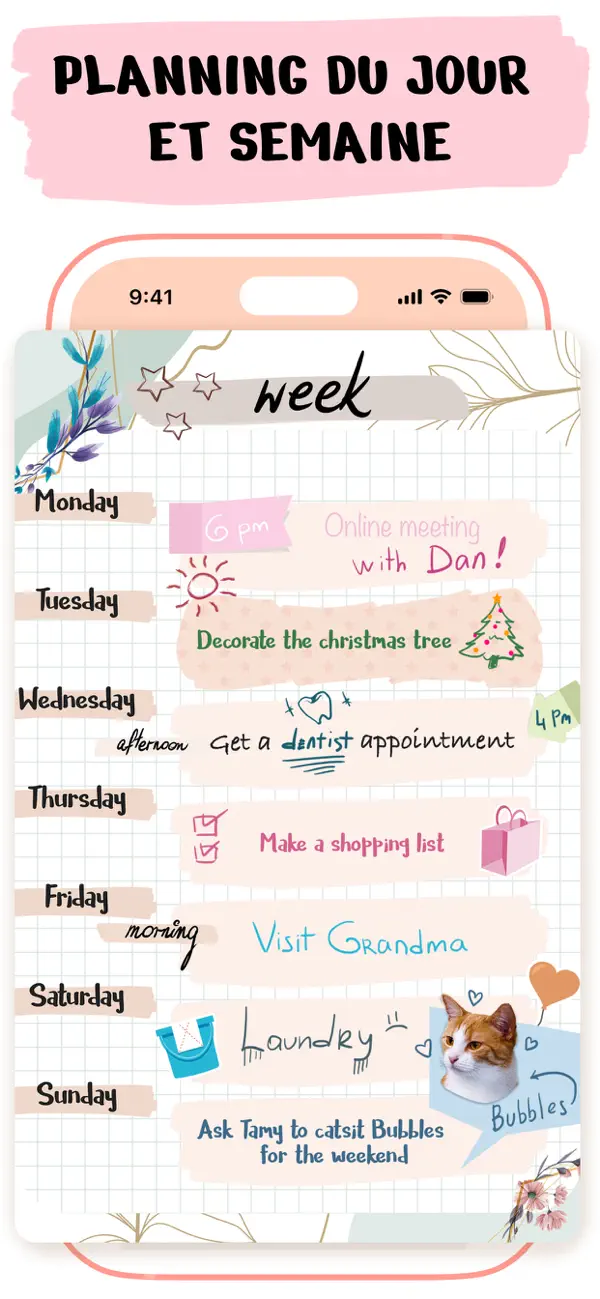 PLANNING DU JOUR
ET SEMAINE
9:41
week
Monday
6 pm
Online meeting
with Dan!
Tuesday
Decorate the christmas tree
Wednesday
4 Pm
afternoon
Get a dentist appointment
Thursday
Make a shopping list
Friday
morning
Visit Grandma
Saturday
Laundry
Bubbles
Sunday
Ask Tamy to catsit Bubbles
for the weekend